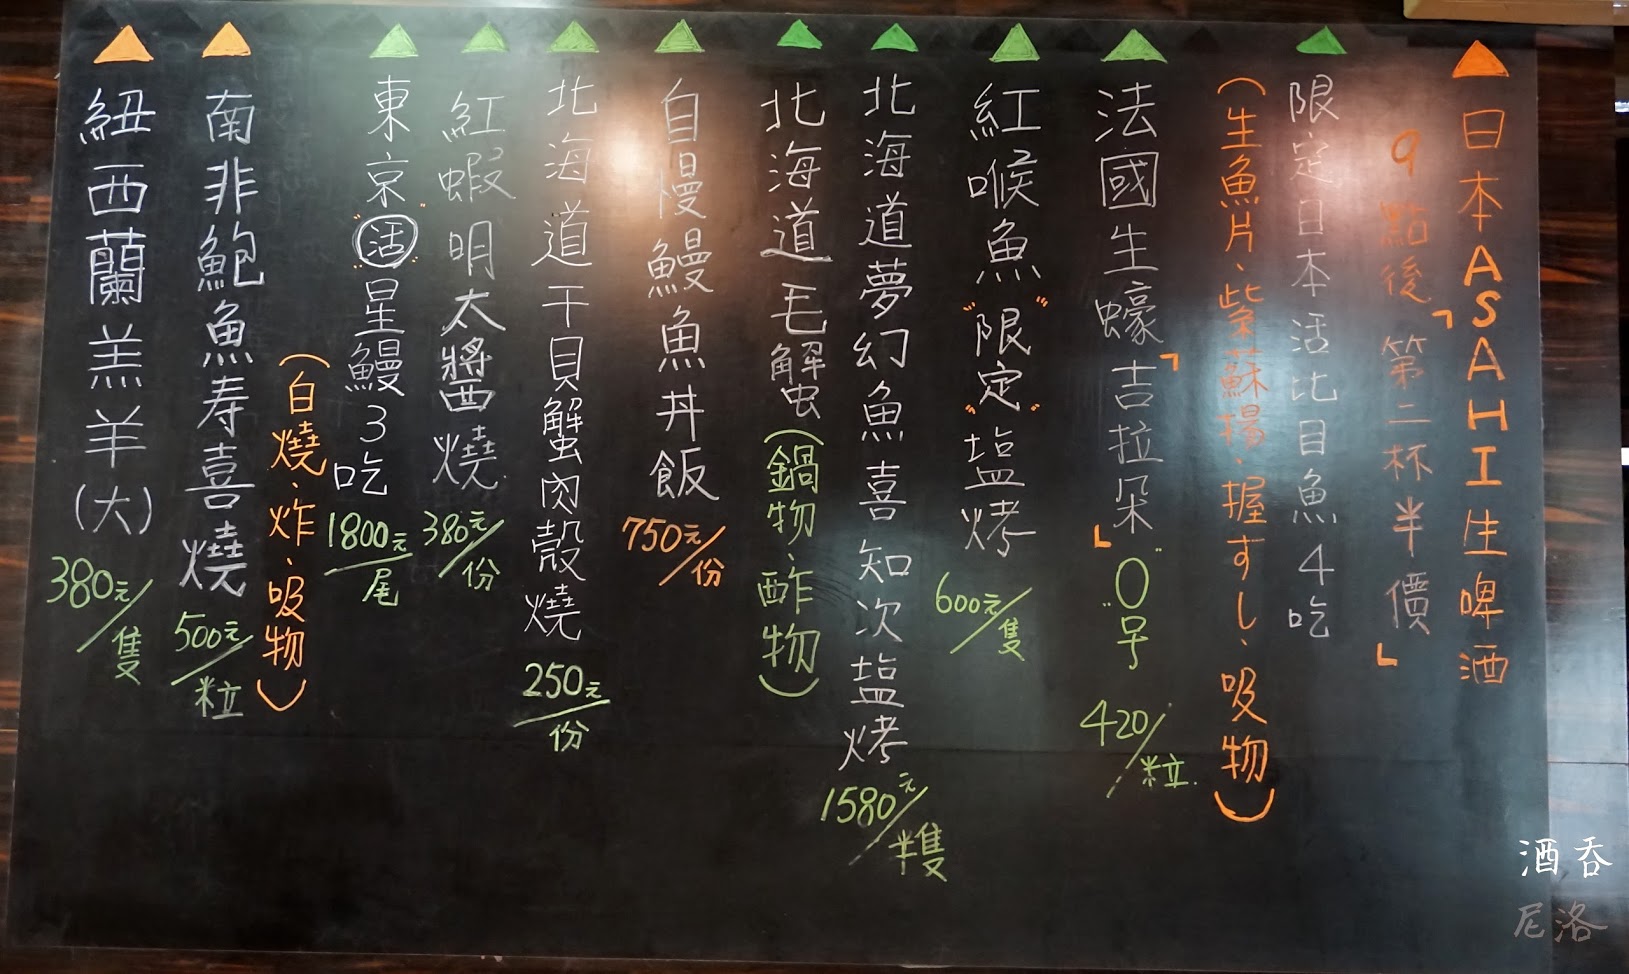 日本ASAHI生啤酒
「9點後第二杯半價」
限定日本活比目魚4吃
(生魚片、紫蘇揚、握すし、吸物)
法國生蠔「吉拉朵」"0号"
420/粒
紅喉魚"限定"塩烤
600元/隻
北海道夢幻魚喜知次塩烤
1580元/半隻
北海道毛解虫(鍋物、酢物)
自慢鰻魚丼飯
750元/份
北海道干貝蟹肉殼燒
250元/份
紅蝦明太醬燒
380元/份
東京"活"星鰻3吃
1800元/尾
(白燒、炸、吸物)
南非鮑魚寿喜燒
500元/粒
紐西蘭羔羊(大)
380元/隻
酒吞
尼洛